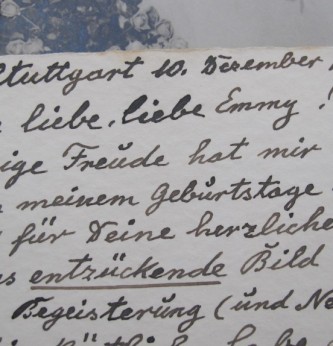 Stuttgart 10. Dezember
liebe, liebe Emmy!
ige Freude hat mir
meinem Geburtstage
für Deine herzliche
s entzückende Bild
Begeisterung (und Ne